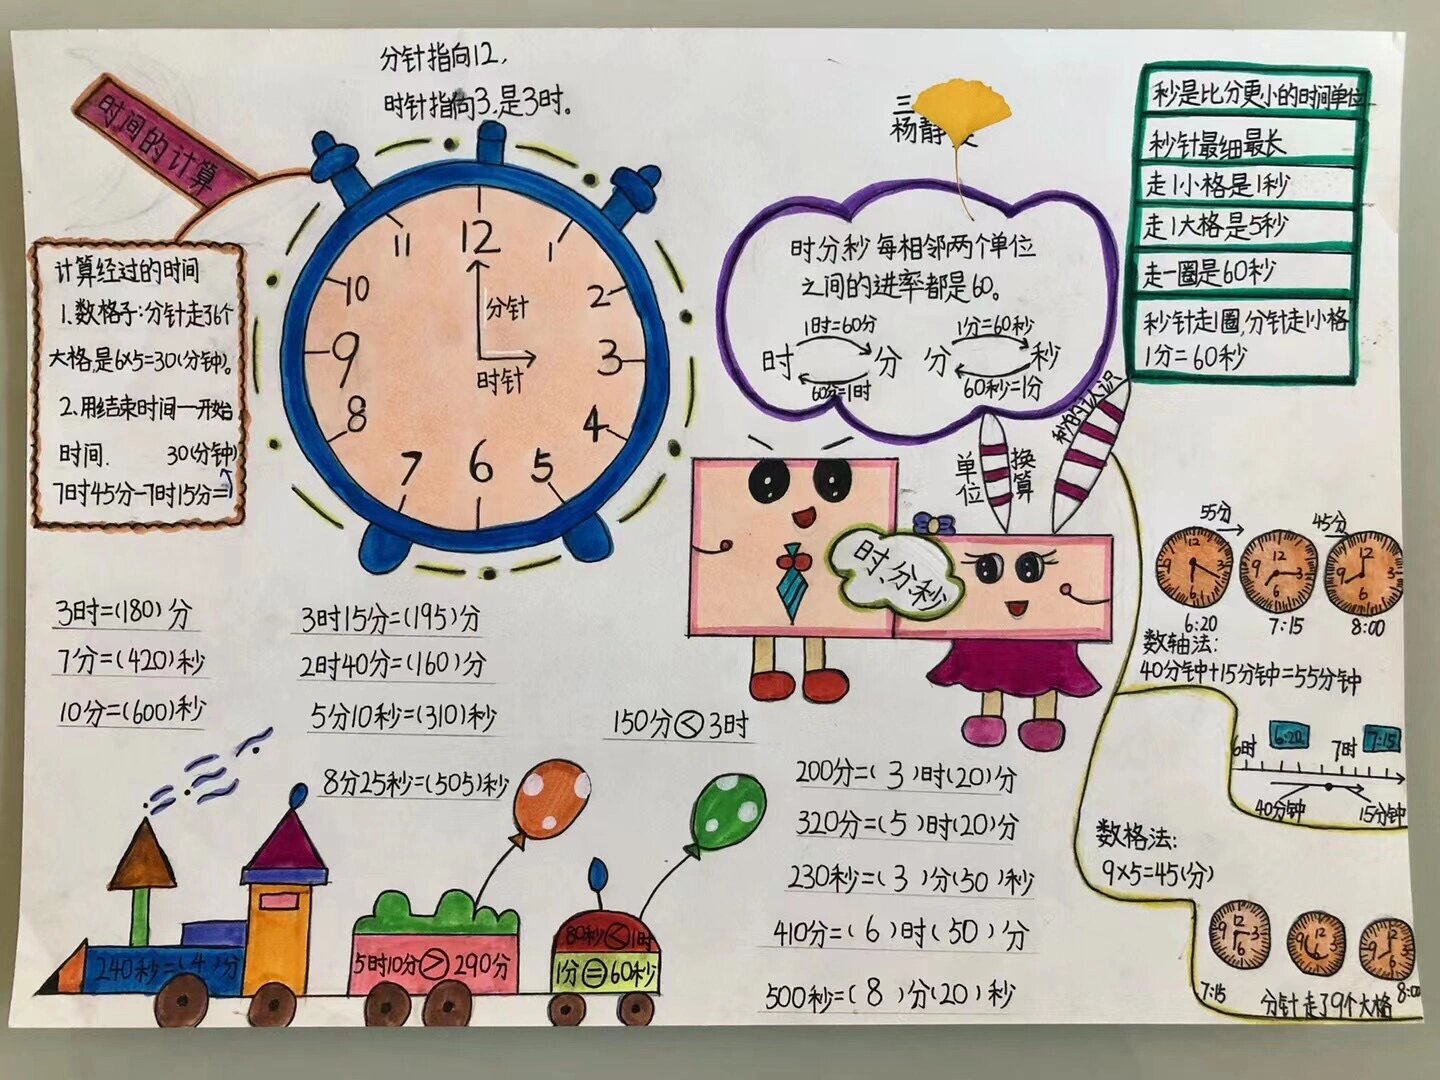 分针指向12,
时针指向3.是3时。
时间的计算
三
杨静
计算经过的时间
1.数格子:分针走了6个
大格,是6×5=30(分钟)。
2.用结束时间一开始
时间.
30(分钟)
7时45分-7时15分=
11
12
1
10
2
9
3
8
4
7
6
5
分针
时针
时、分、秒每相邻两个单位
之间的进率都是60。
1时=60分
时
分
60分=1时
1分=60秒
分
秒
60秒=1分
秒是比分更小的时间单位
秒针最细最长
走1小格是1秒
走1大格是5秒
走一圈是60秒
秒针走1圈,分针走1小格
1分=60秒
单位
换算
秒的认识
时、分、秒
3时=(180)分
7分=(420)秒
10分=(600)秒
3时15分=(195)分
2时40分=(160)分
5分10秒=(310)秒
8分25秒=(505)秒
150分<3时
200分=( 3 )时(20)分
320分=( 5 )时(20)分
230秒=( 3 )分(50)秒
410分=( 6 )时( 50 )分
500秒=( 8 )分(20)秒
240秒=(4)分
5时10分>290分
80秒<1时
1分=60秒
55分
45分
12
9
3
6
12
9
3
6
12
9
3
6
6:20
7:15
8:00
数轴法:
40分钟+15分钟=55分钟
6时
6:20
7时
7:15
40分钟
15分钟
数格法:
9×5=45(分)
12
9
3
6
12
9
3
6
12
9
3
6
7:15
8:00
分针走了9个大格